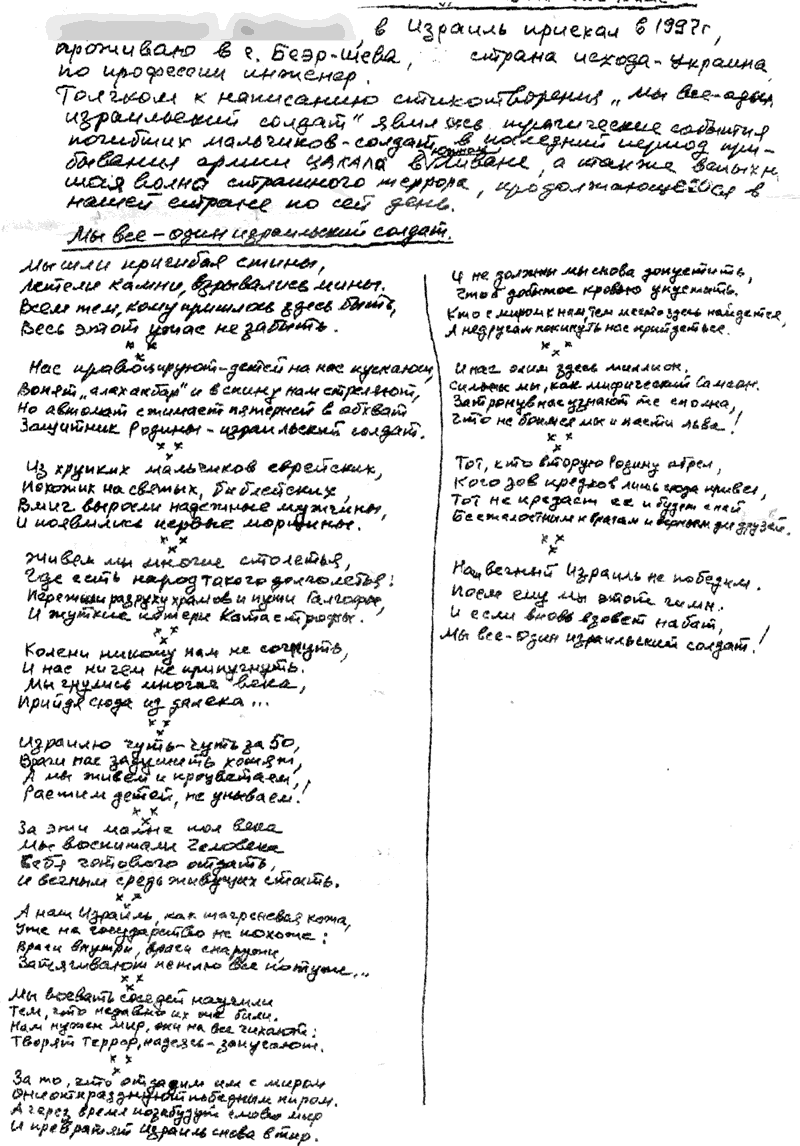 в Израиль приехал в 1997г,
проживаю в г. Беэр-Шева, страна исхода-Украина,
по профессии инженер.
Толчком к написанию стихотворения „Мы все-один
израильский солдат" явились трагические события
погибших мальчиков-солдат в последний период пре-
бывания армии ЦАХАЛА в Южном Ливане, а также
волна страшного террора, продолжающегося в
нашей стране по сей день.
Мы все-один израильский солдат.
Мы шли пригибая спины,
Летели камни, взрывались мины.
Всем тем, кому пришлось здесь быть,
Весь этот ужас не забыть.
Нас провоцируют-детей на нас пускают,
Вопят „алах акбар" и в спину нам стреляют,
Но автомат сжимает пятерней в обхват
Защитник Родины-израильский солдат.
Из хрупких мальчиков еврейских,
Похожих на святых, библейских,
Вмиг выросли надежные мужчины,
И появились первые морщины.
Живем мы многие столетья,
Где есть народ такого долголетья!
Пережили разруху храмов и пути Галгофы,
И жуткие потери Катастрофы.
Колени никому нам не согнуть,
И нас ничем не припугнуть.
Мы гнулись многие века,
Прийдя сюда из далека...
Израилю чуть-чуть за 50,
Враги нас задушить хотят,
А мы живем и процветаем,
Растим детей, не унываем!
За эти малые пол века
Мы воспитали Человека
Себя готового отдать,
И вечным средь живущих стать.
А наш Израиль, как шагреневая кожа,
Уже на государство не похоже:
Враги внутри, враги снаружи,
Затягивают петлю все потуже...
Мы воевать соседей научили
Тем, что недавно их же били.
Нам нужен мир, они на все чихают:
Творят террор, надеясь-запугают.
За то, что отдадим им с миром
Они отпразднуют победным пиром.
А через время позабудут слово мир
И превратят Израиль снова в тир.
И не должны мы снова допустить,
Чтоб добытое кровью упустить.
Кто с миром к нам, тем место здесь найдется,
А недругам покинуть нас прийдеться.
И нас олим здесь миллион.
Сильны мы, как мифический Самсон.
Затронув нас узнают те сполна,
Что не боимся мы и пасти льва!
Тот, кто вторую Родину обрел,
Кого зов предков лишь сюда привел,
Тот не предаст ее и будет с ней
Безжалостным к врагам и верным для друзей.
Наш вечный Израиль не победим.
Поем ему мы этот гимн.
И если вновь взовет набат,
Мы все-один израильский солдат!